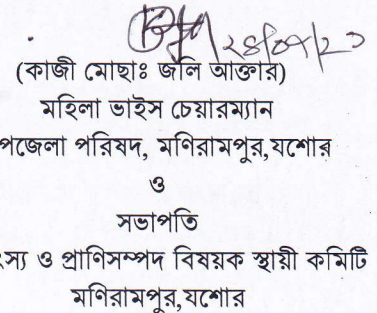 (কাজী মোছাঃ জলি আক্তার)
মহিলা ভাইস চেয়ারম্যান
পজেলা পরিষদ, মণিরামপুর,যশোর
ও
সভাপতি
ৎস্য ও প্রাণিসম্পদ বিষয়ক স্থায়ী কমিটি
মণিরামপুর,যশোর